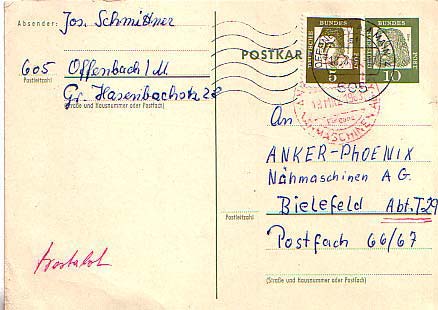 Absender: Jos. Schmittner
605 Offenbach/M.
Postleitzahl
Gr. Hasenbachstr 28
(Straße und Hausnummer oder Postfach)
POSTKAR
DEUTSCHE BUNDESPOST
5
DEUTSCHE BUNDESPOST
10
605
NÄHMASCHINEN
An
ANKER-PHOENIX
Nähmaschinen A G.
Bielefeld Abt. T29
Postleitzahl
Postfach 66/67
(Straße und Hausnummer oder Postfach)